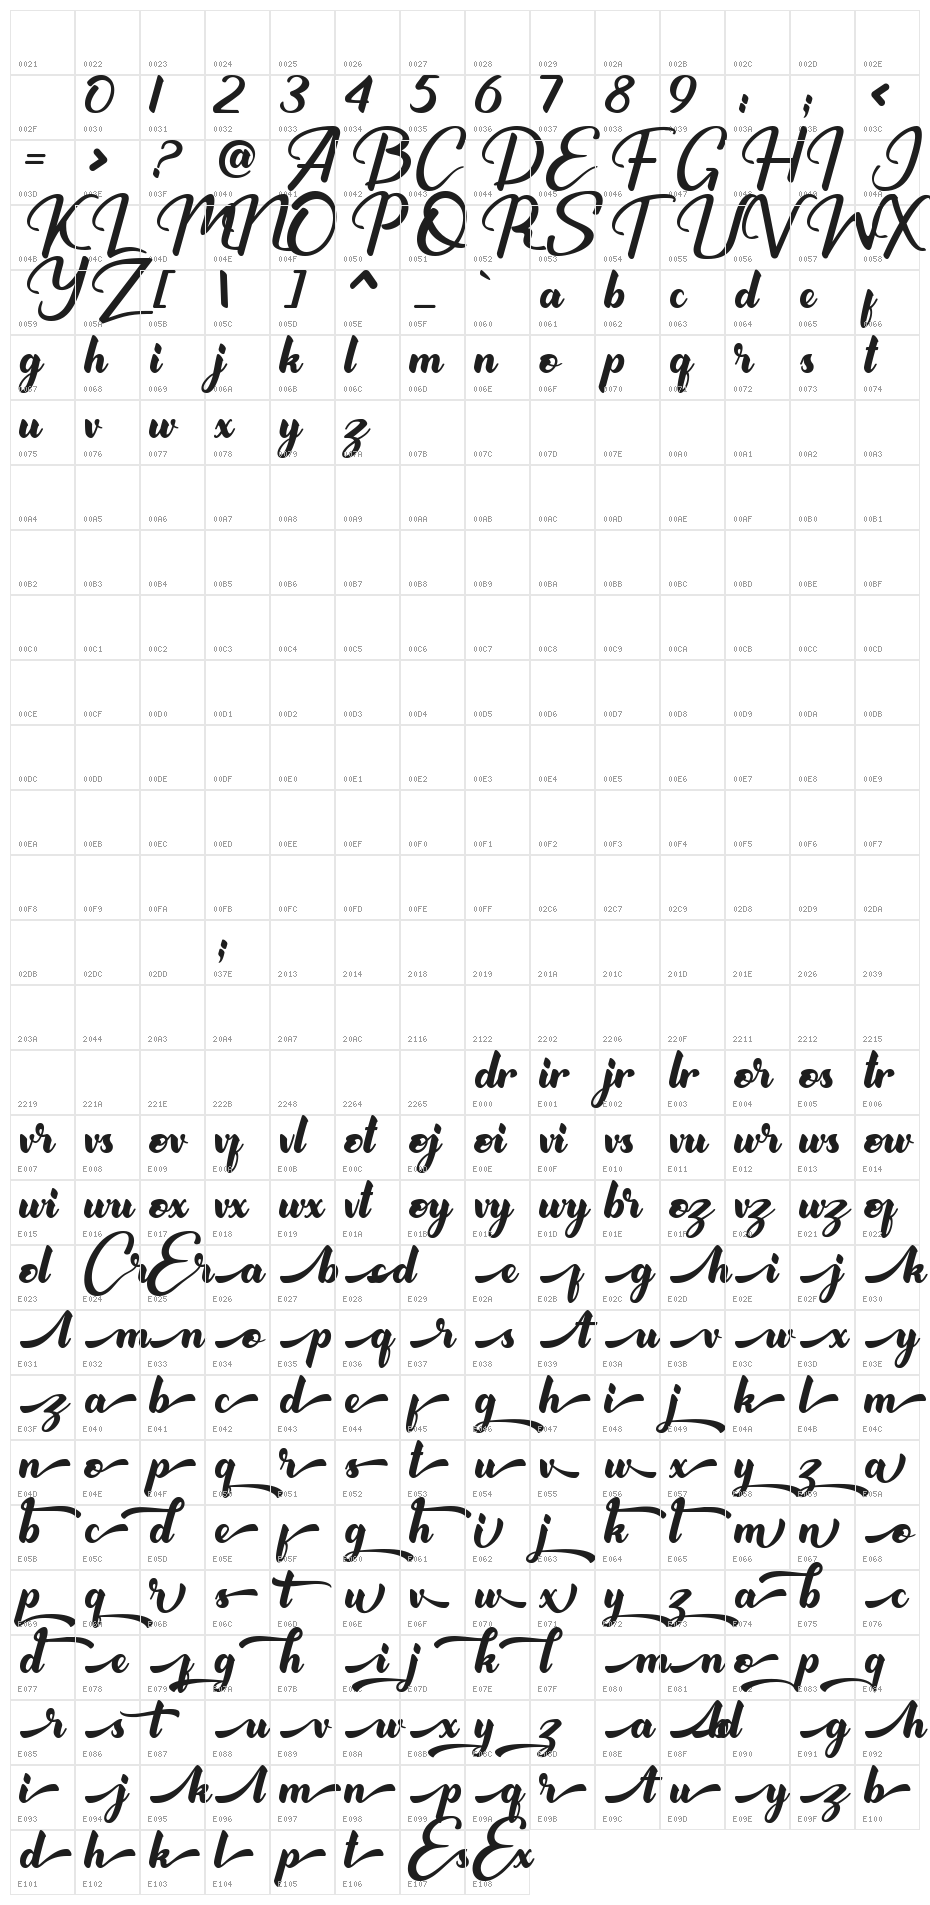 0021 0022 0023 0024 0025 0026 0027 0028 0029 002A 002B 002C 002D 002E
0 1 2 3 4 5 6 7 8 9 : ; <
002F 0030 0031 0032 0033 0034 0035 0036 0037 0038 0039 003A 003B 003C
= > ? @ A B C D E F G H I J
003D 003E 003F 0040 0041 0042 0043 0044 0045 0046 0047 0048 0049 004A
K L M N O P Q R S T U V W X
004B 004C 004D 004E 004F 0050 0051 0052 0053 0054 0055 0056 0057 0058
Y Z [ \ ] ^ _ ` a b c d e f
0059 005A 005B 005C 005D 005E 005F 0060 0061 0062 0063 0064 0065 0066
g h i j k l m n o p q r s t
0067 0068 0069 006A 006B 006C 006D 006E 006F 0070 0071 0072 0073 0074
u v w x y z
0075 0076 0077 0078 0079 007A 007B 007C 007D 007E 00A0 00A1 00A2 00A3
00A4 00A5 00A6 00A7 00A8 00A9 00AA 00AB 00AC 00AD 00AE 00AF 00B0 00B1
00B2 00B3 00B4 00B5 00B6 00B7 00B8 00B9 00BA 00BB 00BC 00BD 00BE 00BF
00C0 00C1 00C2 00C3 00C4 00C5 00C6 00C7 00C8 00C9 00CA 00CB 00CC 00CD
00CE 00CF 00D0 00D1 00D2 00D3 00D4 00D5 00D6 00D7 00D8 00D9 00DA 00DB
00DC 00DD 00DE 00DF 00E0 00E1 00E2 00E3 00E4 00E5 00E6 00E7 00E8 00E9
00EA 00EB 00EC 00ED 00EE 00EF 00F0 00F1 00F2 00F3 00F4 00F5 00F6 00F7
00F8 00F9 00FA 00FB 00FC 00FD 00FE 00FF 02C6 02C7 02C9 02D8 02D9 02DA
;
02DB 02DC 02DD 037E 2013 2014 2018 2019 201A 201C 201D 201E 2026 2039
203A 2044 20A3 20A4 20A7 20AC 2116 2122 2202 2206 220F 2211 2212 2215
dr ir jr lr or os tr
2219 221A 221E 222B 2248 2264 2265 E000 E001 E002 E003 E004 E005 E006
vr vs ov vf vl ot oj oi vi vs vu wr ws ow
E007 E008 E009 E00A E00B E00C E00D E00E E00F E010 E011 E012 E013 E014
wi wu ox vx wx vt oy vy wy br oz vz wz of
E015 E016 E017 E018 E019 E01A E01B E01C E01D E01E E01F E020 E021 E022
ol Cr Er a b c d e f g h i j k
E023 E024 E025 E026 E027 E028 E029 E02A E02B E02C E02D E02E E02F E030
l m n o p q r s t u v w x y
E031 E032 E033 E034 E035 E036 E037 E038 E039 E03A E03B E03C E03D E03E
z a b c d e f g h i j k l m
E03F E040 E041 E042 E043 E044 E045 E046 E047 E048 E049 E04A E04B E04C
n o p q r s t u v w x y z a
E04D E04E E04F E050 E051 E052 E053 E054 E055 E056 E057 E058 E059 E05A
b c d e f g h i j k l m n o
E05B E05C E05D E05E E05F E060 E061 E062 E063 E064 E065 E066 E067 E068
p q r s t u v w x y z a b c
E069 E06A E06B E06C E06D E06E E06F E070 E071 E072 E073 E074 E075 E076
d e f g h i j k l m n o p q
E077 E078 E079 E07A E07B E07C E07D E07E E07F E080 E081 E082 E083 E084
r s t u v w x y z a b d g h
E085 E086 E087 E088 E089 E08A E08B E08C E08D E08E E08F E090 E091 E092
i j k l m n p q r t u y z b
E093 E094 E095 E096 E097 E098 E099 E09A E09B E09C E09D E09E E09F E100
d h k l p t Es Ex
E101 E102 E103 E104 E105 E106 E107 E108